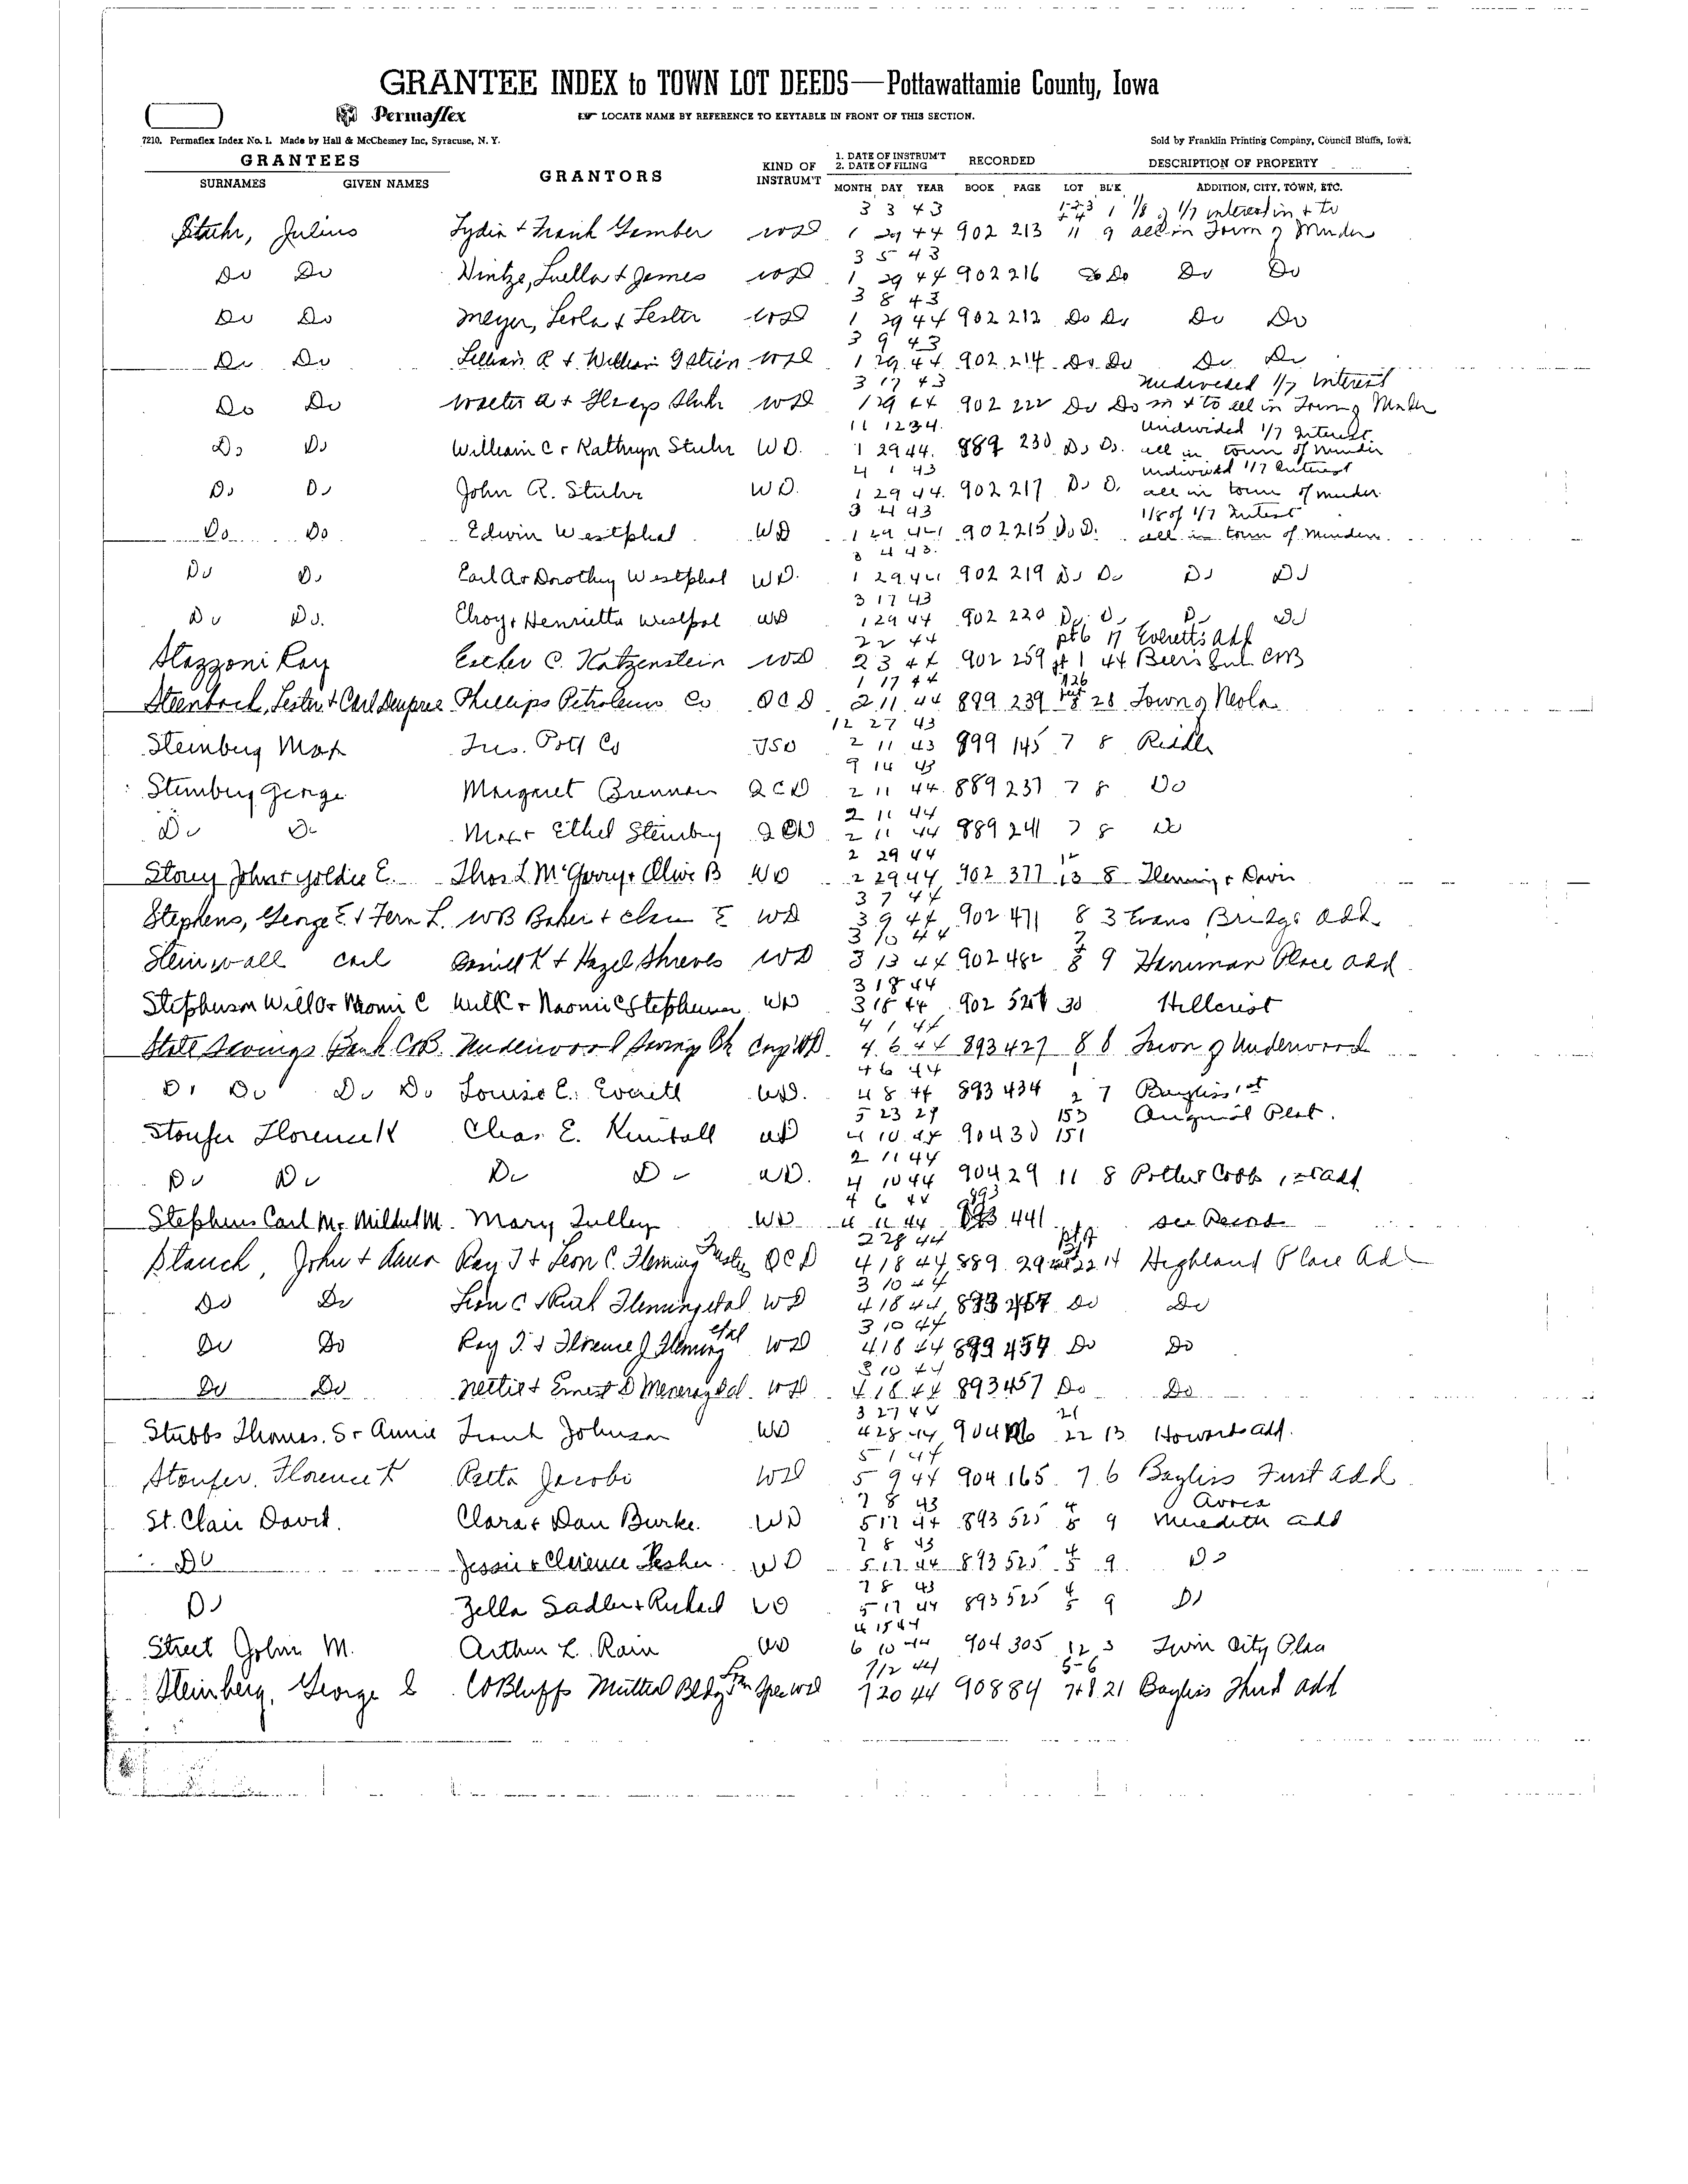 GRANTEE INDEX to TOWN LOT DEEDS—Pottawattamie County, Iowa
Permaflex
LOCATE NAME BY REFERENCE TO KEYTABLE IN FRONT OF THIS SECTION.
7210. Permaflex Index No. 1. Made by Hall & McChesney Inc, Syracuse, N. Y.
Sold by Franklin Printing Company, Council Bluffs, Iowa.
GRANTEES
GRANTORS
KIND OF INSTRUM'T
1. DATE OF INSTRUM'T
2. DATE OF FILING
RECORDED
DESCRIPTION OF PROPERTY
SURNAMES GIVEN NAMES
MONTH DAY YEAR BOOK PAGE LOT BL'K ADDITION, CITY, TOWN, ETC.
3 3 43 1-2-3 1 1/8 of 1/7 interest in & to
Stuhr, Julius Lydia & Frank Gamber WD 1 29 44 902 213 11 9 all in Town of Minden
3 5 43
Do Do Wintze, Luella & James WD 1 29 44 902 216 Do Do Do Do
3 8 43
Do Do Meyer, Leola & Lester WD 1 29 44 902 212 Do Do Do Do
3 9 43
Do Do Lillian R & William WD 1 29 44 902 214 Do Do Do Do
3 17 43 Undivided 1/7 Interest
Do Do Walter A & Stuhr WD 1 29 44 902 222 Do Do in & to all in Town of Minden
11 12 34 Undivided 1/7 Interest
Do Do William C & Kathryn Stuhr WD. 1 29 44. 889 230 Do Do. all in town of Minden
4 1 43 Undivided 1/7 Interest
Do Do John R. Stuhr WD. 1 29 44. 902 217 Do Do all in town of Minden.
3 4 43 1/8 of 1/7 Interest
Do Do Edwin Westphal WD 1 29 44 902 215 Do Do. all in town of Minden.
3 4 43.
Do Do Earl A & Dorothy Westphal WD. 1 29 44 902 219 Do Do Do Do
3 17 43
Do Do. Elroy & Henrietta Westfal WD 1 29 44 902 220 Do Do Do Do
2 2 44 pt 6 17 Everett's Add
Stazzoni Ray Esther C. Katzenstein WD 2 3 44 902 259 pt 1 44 Beers Sub CB
1 17 44
Steinbach, Lester & Carl Phillips Petroleum Co QCD 2 11 44 889 239 28 Town of Neola
12 27 43
Steinberg Max Tres. Pott Co TSD 2 11 43 899 145 7 8 Riddle
9 14 43
Steinberg George Margaret Brennan QCD 2 11 44 889 237 7 8 Do
2 11 44
Do Do Max & Ethel Steinberg QCD 2 11 44 889 241 7 8 Do
2 29 44 12
Story John & Goldie E. Thos L McGarry & Olive B WD 2 29 44 902 377 13 8 Fleming & Davis
3 7 44
Stephens, George E. & Fern L. WB Baker & Clara E WD 3 9 44 902 471 8 3 Evans Bridge Add
3 10 44 7
Steinwall Carl & Hazel Shreves WD 3 13 44 902 482 8 9 Place Add
3 18 44
Stephenson Will O & Naomi C Will & Naomi C Stephenson WD 3 18 44 902 30 Hillcrest
4 1 44
State Savings Bank C.B. Underwood Savings Bk Corp WD. 4 6 44 893 427 8 8 Town of Underwood
4 6 44 1
Do Do Do Do Louise C. Everett WD. 4 8 44 893 434 2 7 Bayliss 1st
5 23 29 153 Original Plat.
Stoufer Florence K Chas. E. Kimball WD 4 10 44 904 30 151
2 11 44
Do Do Do Do WD. 4 10 44 904 29 11 8 Potter Cobb 1st Add
4 6 44 893
Stephens Carl M & Mildred M. Mary Tulley WD 4 11 44 441 See Record
2 28 44
Stauch, John & Anna Ray J & Leon C. Fleming Trustee QCD 4 18 44 889 14 Highland Place Add
3 10 44
Do Do Leon C & Ruth Fleming etal WD 4 18 44 893 457 Do Do
3 10 44
Do Do Ray J. & Florence J Fleming etal WD 4 18 44 893 459 Do Do
3 10 44
Do Do Nettie & Ernest D Meneray etal. WD 4 18 44 893 457 Do Do
3 27 44 21
Stubbs Thomas. S & Annie Frank Johnson WD 4 28 44 904 22 13 Howards Add.
5 1 44
Stoufer. Florence K Retta Jacobi WD 5 9 44 904 165 7 6 Bayliss First Add
7 8 43 4 Avoca
St. Clair David. Clara & Dan Burke. WD 5 17 44 893 525 5 9 Meredith Add
7 8 43 4
Do Jessie & Clarence Lesher. WD 5 17 44 893 525 5 9 Do
7 8 43 4
Do Zella Sadler & Richard WD 5 17 44 893 525 5 9 Do
4 15 44
Street John M. Arthur L. Rain WD 6 10 44 904 305 12 3 Twin City Plaa
7 12 44 5-6
Steinberg, George C Bluffs Mutual Bldg Ln Spec WD 7 20 44 908 84 7&8 21 Bayliss Third Add